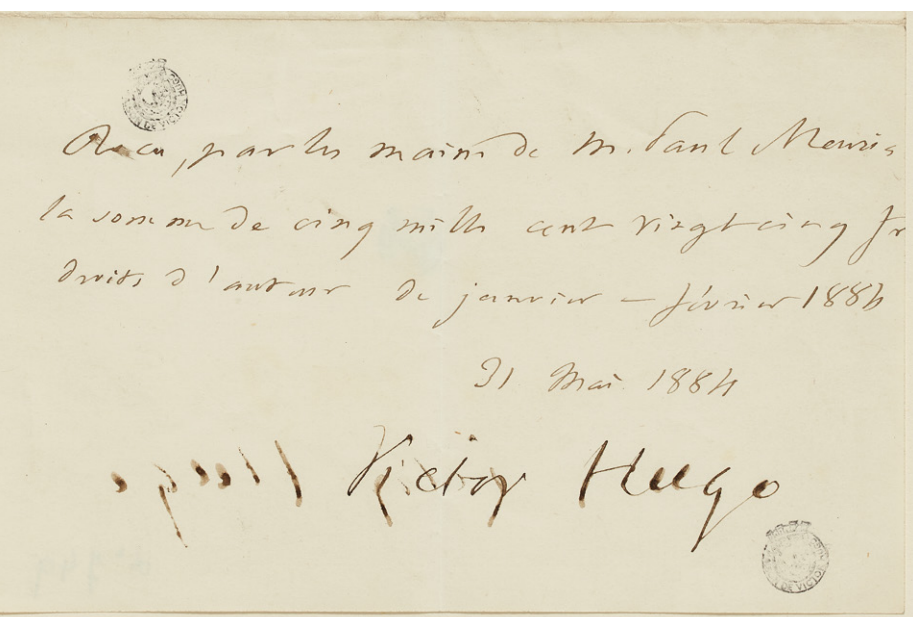 Reçu, par les mains de M. Paul Meurice
la somme de cinq mille cent vingt cinq fr
droits d'auteur de janvier – février 1884
31 Mai 1884
Victor Hugo